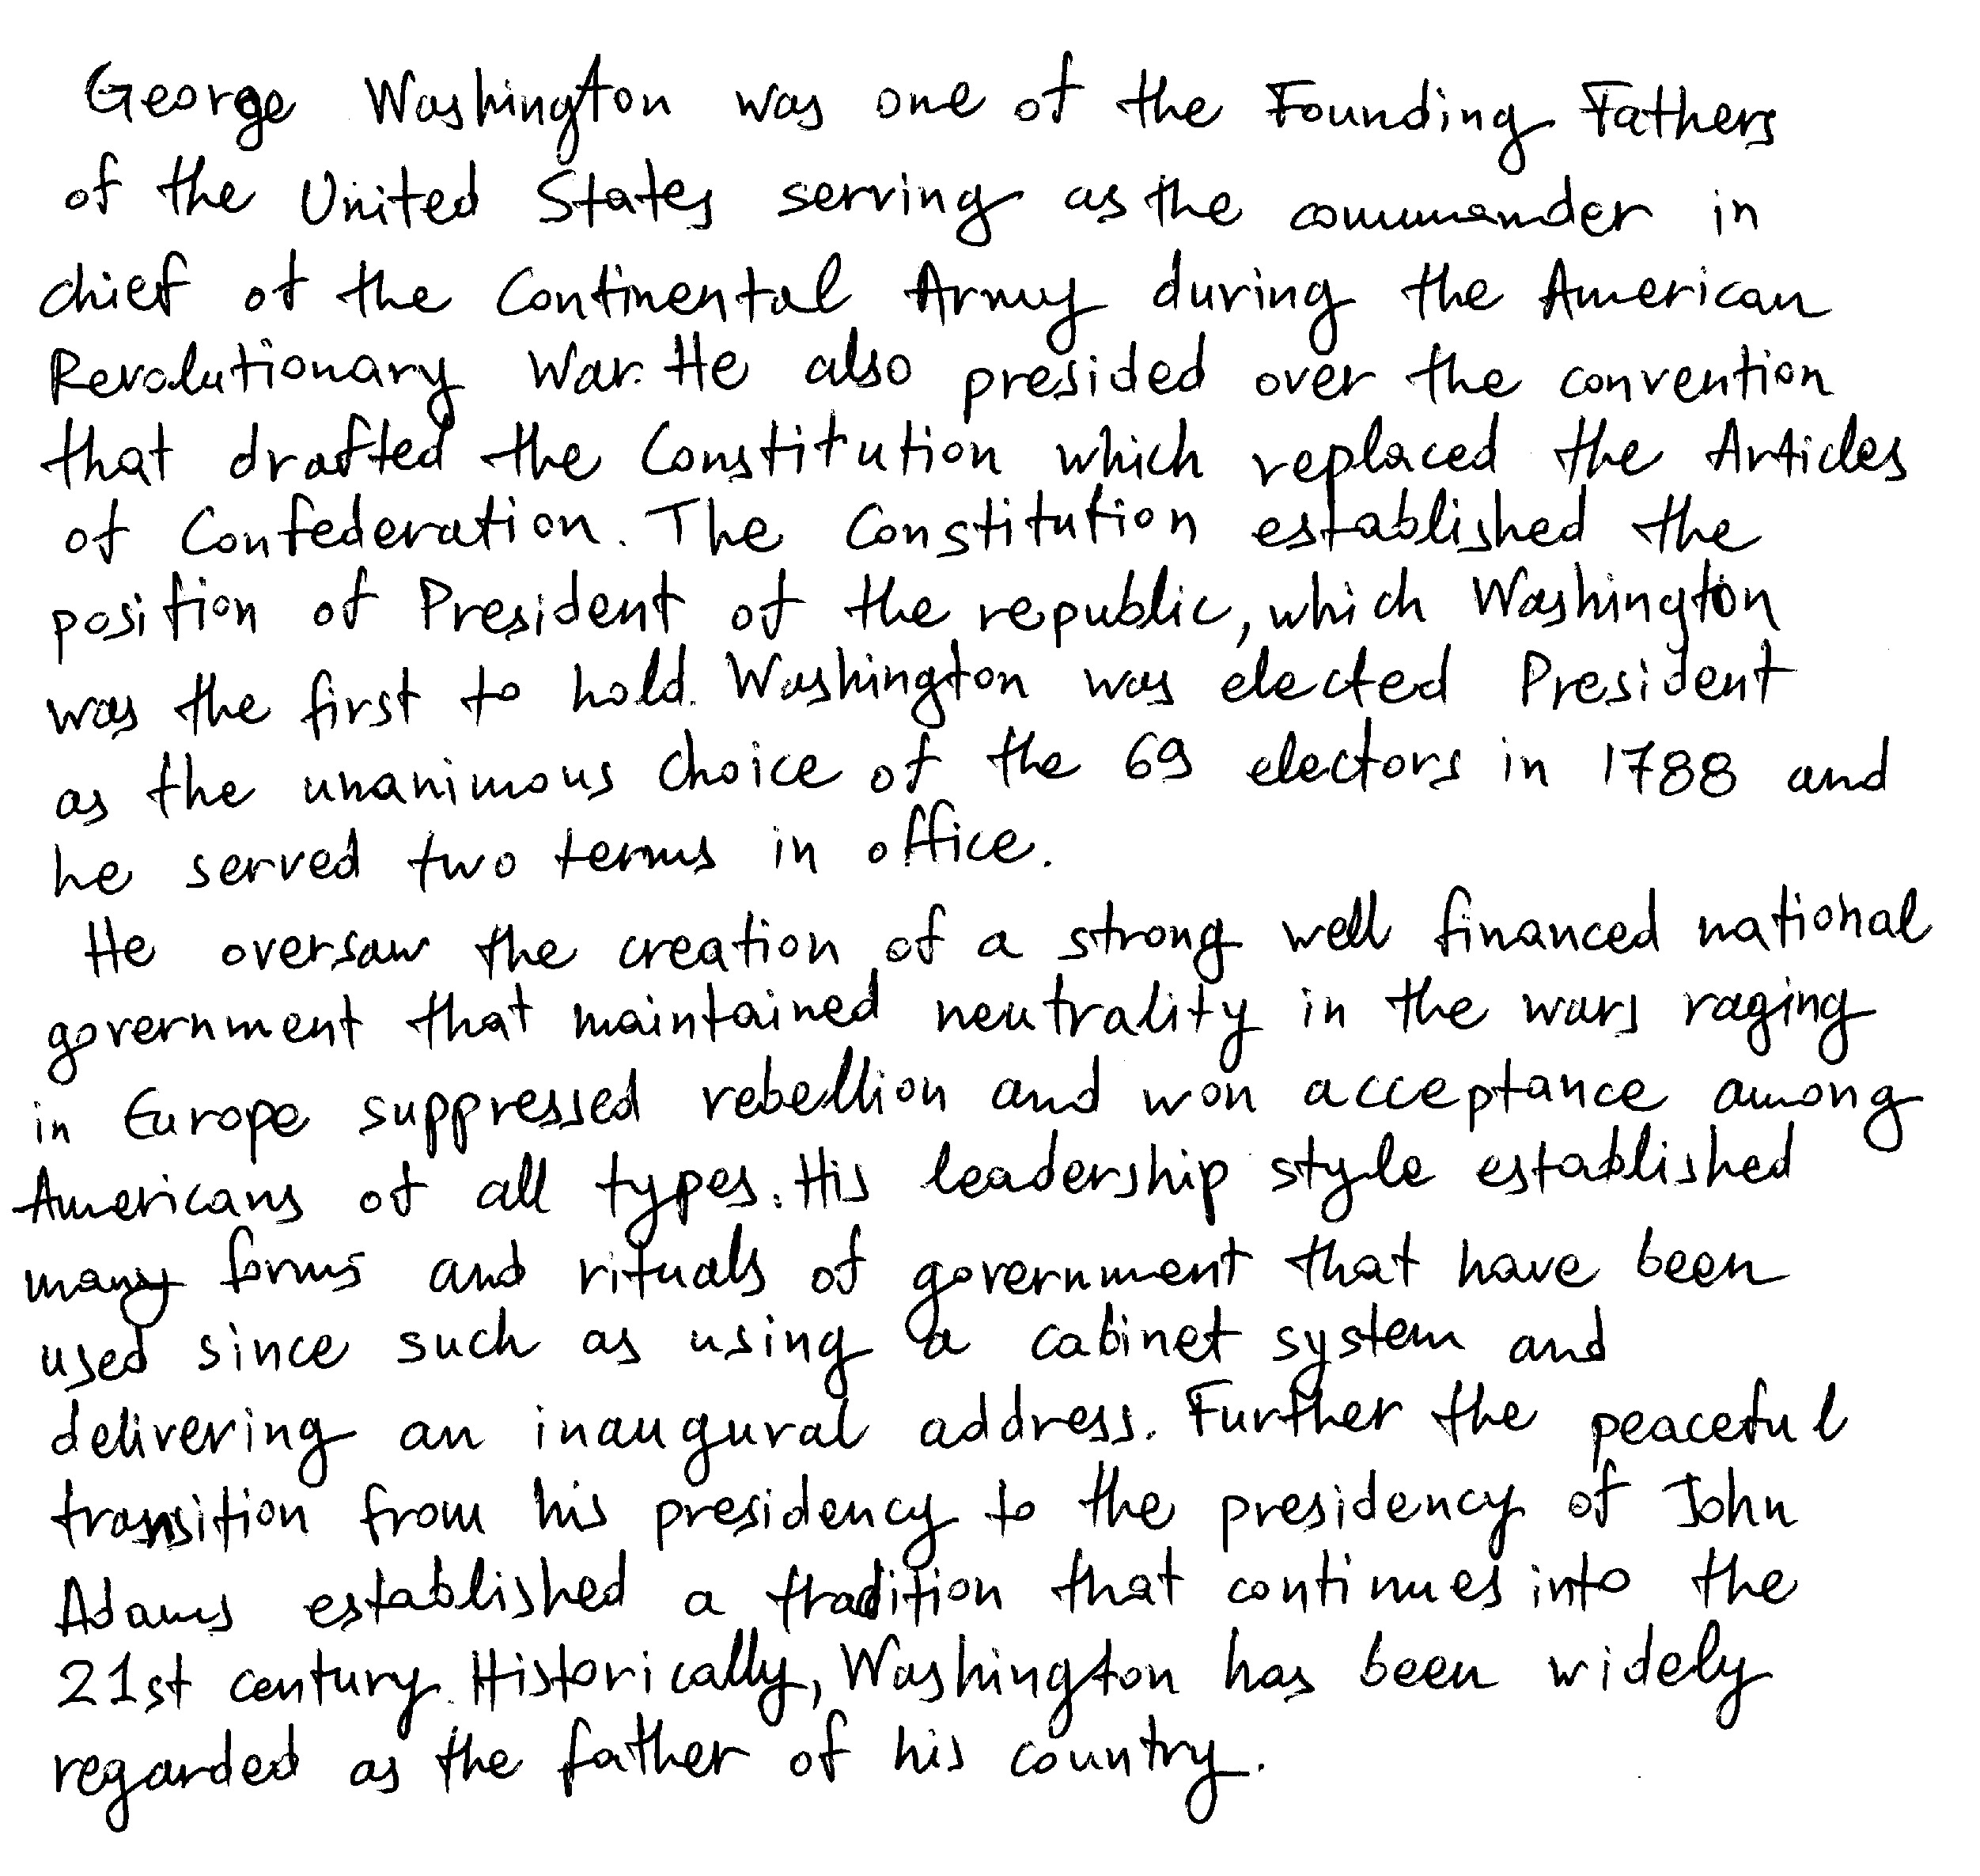 George Washington was one of the Founding Fathers
of the United States serving as the commander in
chief of the Continental Army during the American
Revolutionary War. He also presided over the convention
that drafted the Constitution which replaced the Articles
of Confederation. The Constitution established the
position of President of the republic, which Washington
was the first to hold. Washington was elected President
as the unanimous choice of the 69 electors in 1788 and
he served two terms in office.
He oversaw the creation of a strong well financed national
government that maintained neutrality in the wars raging
in Europe suppressed rebellion and won acceptance among
Americans of all types. His leadership style established
many forms and rituals of government that have been
used since such as using a cabinet system and
delivering an inaugural address. Further the peaceful
transition from his presidency to the presidency of John
Adams established a tradition that continues into the
21st century. Historically, Washington has been widely
regarded as the father of his country.